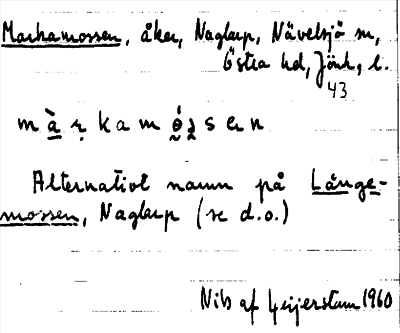 Markamossen, åker, Naglarp, Nävelsjö sn,
Östra hd, Jönk, l.
43
Alternativt namn på Långe-
mossen, Naglarp (se d.o.)
Nils af Geijerstam 1960